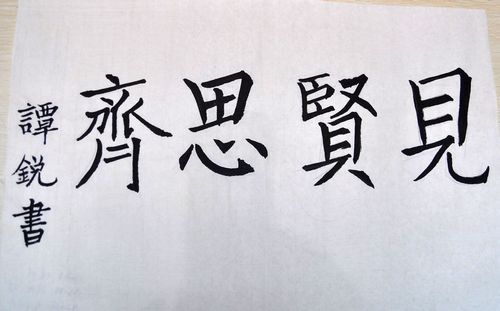 見賢思齊
譚鋭書